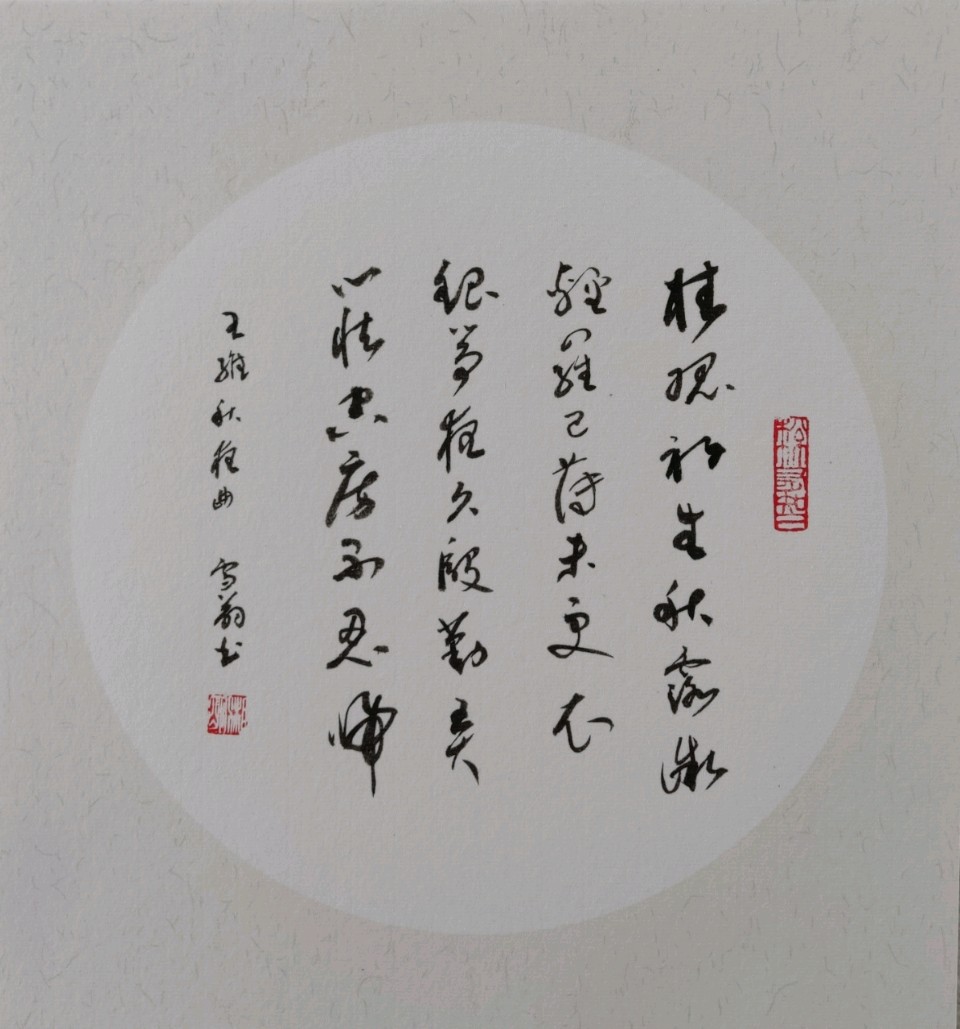 桂魄初生秋露微
輕羅已薄未更衣
銀筝夜久殷勤弄
心怯空房不忍歸
王維秋夜曲 雪韵书